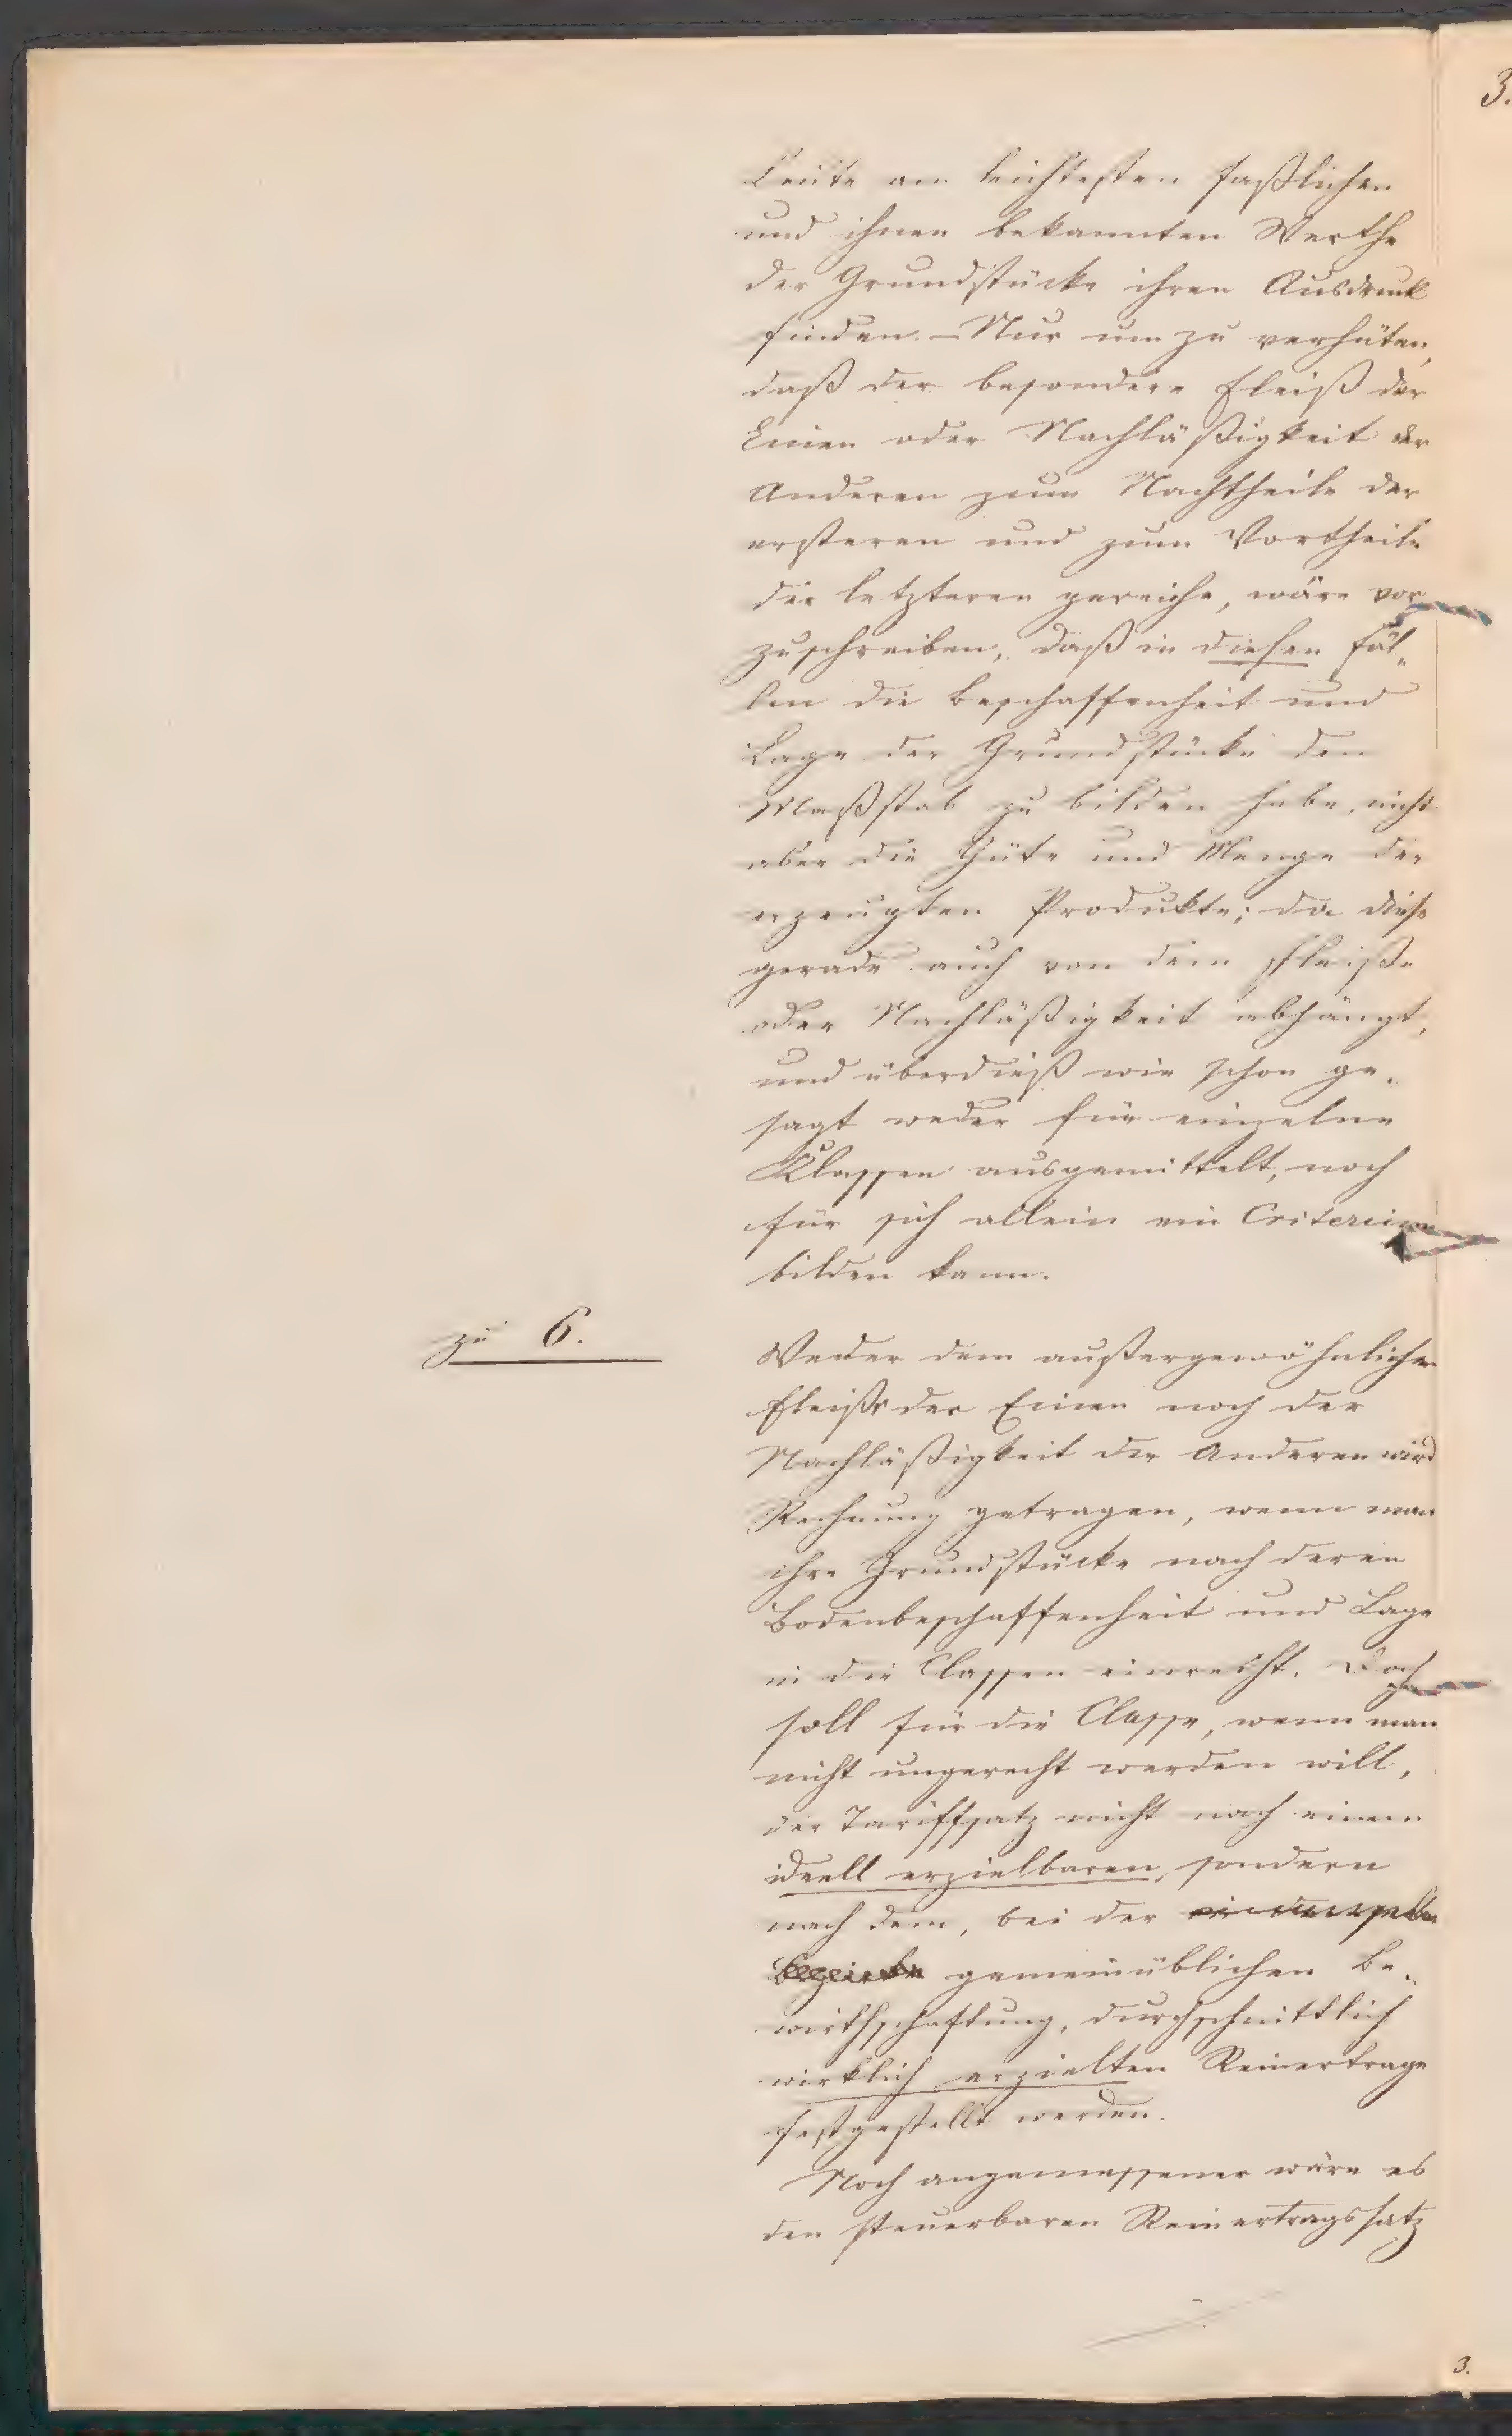 3.
Leute am leichtesten faßlichen
und ihnen bekannten Werthe
der Grundstücke ihren Ausdruck
finden. – Nur um zu verhüten,
daß der besondere Fleiß der
Einen oder Nachläßigkeit der
Anderen zum Nachtheile der
ersteren und zum Vortheile
der letzteren gereiche, wäre vor
zuschreiben, daß in diesen Fäl„
len die Beschaffenheit und
Lage der Grundstücke den
Maßstab zu bilden habe, nicht
aber die Güte und Menge der
erzeugten Produkte; da diese
gerade auch von dem Fleiße
oder Nachläßigkeit abhängt,
und überdieß wie schon ge„
sagt weder für einzelne
Klassen ausgemittelt, noch
für sich allein ein Criterium
bilden kann.
zu 6.
Weder dem außergewöhnlichen
Fleiße der Einen noch der
Nachläßigkeit der Anderen wird
Rechnung getragen, wenn man
ihre Grundstücke nach deren
Bodenbeschaffenheit und Lage
in die Classen einreiht. Doch
soll für die Classe, wenn man
nicht ungerecht werden will,
der Tariffsatz nicht nach einem
ideell erzielbaren, sondern
nach dem, bei der
gemeinüblichen Be„
wirthschaftung, durchschnittlich
wirklich erzielten Reinertrage
festgestellt werden.
Noch angemessener wäre es
den steuerbaren Reinertragssatz
3.